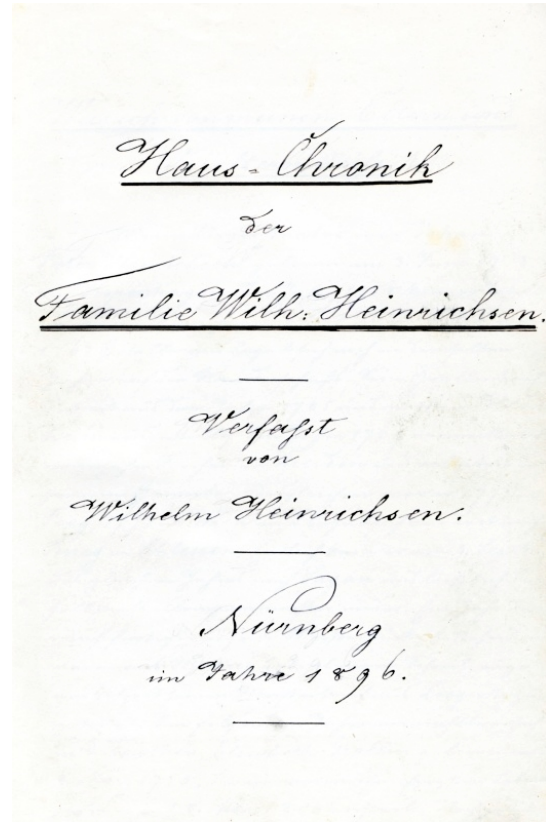 Haus-Chronik
der
Familie Wilh: Heinrichsen.
Verfaßt
von
Wilhelm Heinrichsen.
Nürnberg
im Jahre 1896.